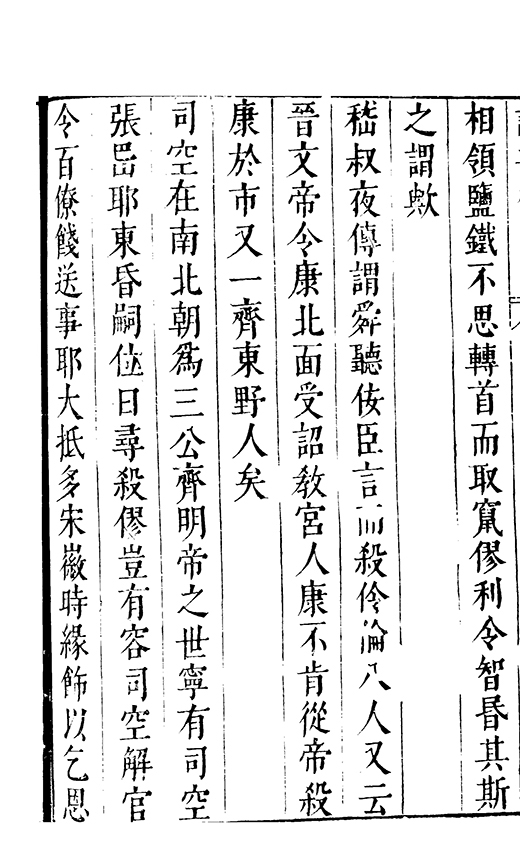 相領鹽鐵不思轉首而取竄僇利令智昬其斯
之謂歟
嵇叔夜傳謂舜聽佞臣言而殺伶淪八人又云
晉文帝令康北面受詔敎宮人康不肯從帝殺
康於市又一齊東野人矣
司空在南北朝爲三公齊明帝之世寧有司空
張嵒耶東昏嗣位日尋殺僇豈有容司空解官
令百僚餞送事耶大抵多宋徽時緣飾以乞恩